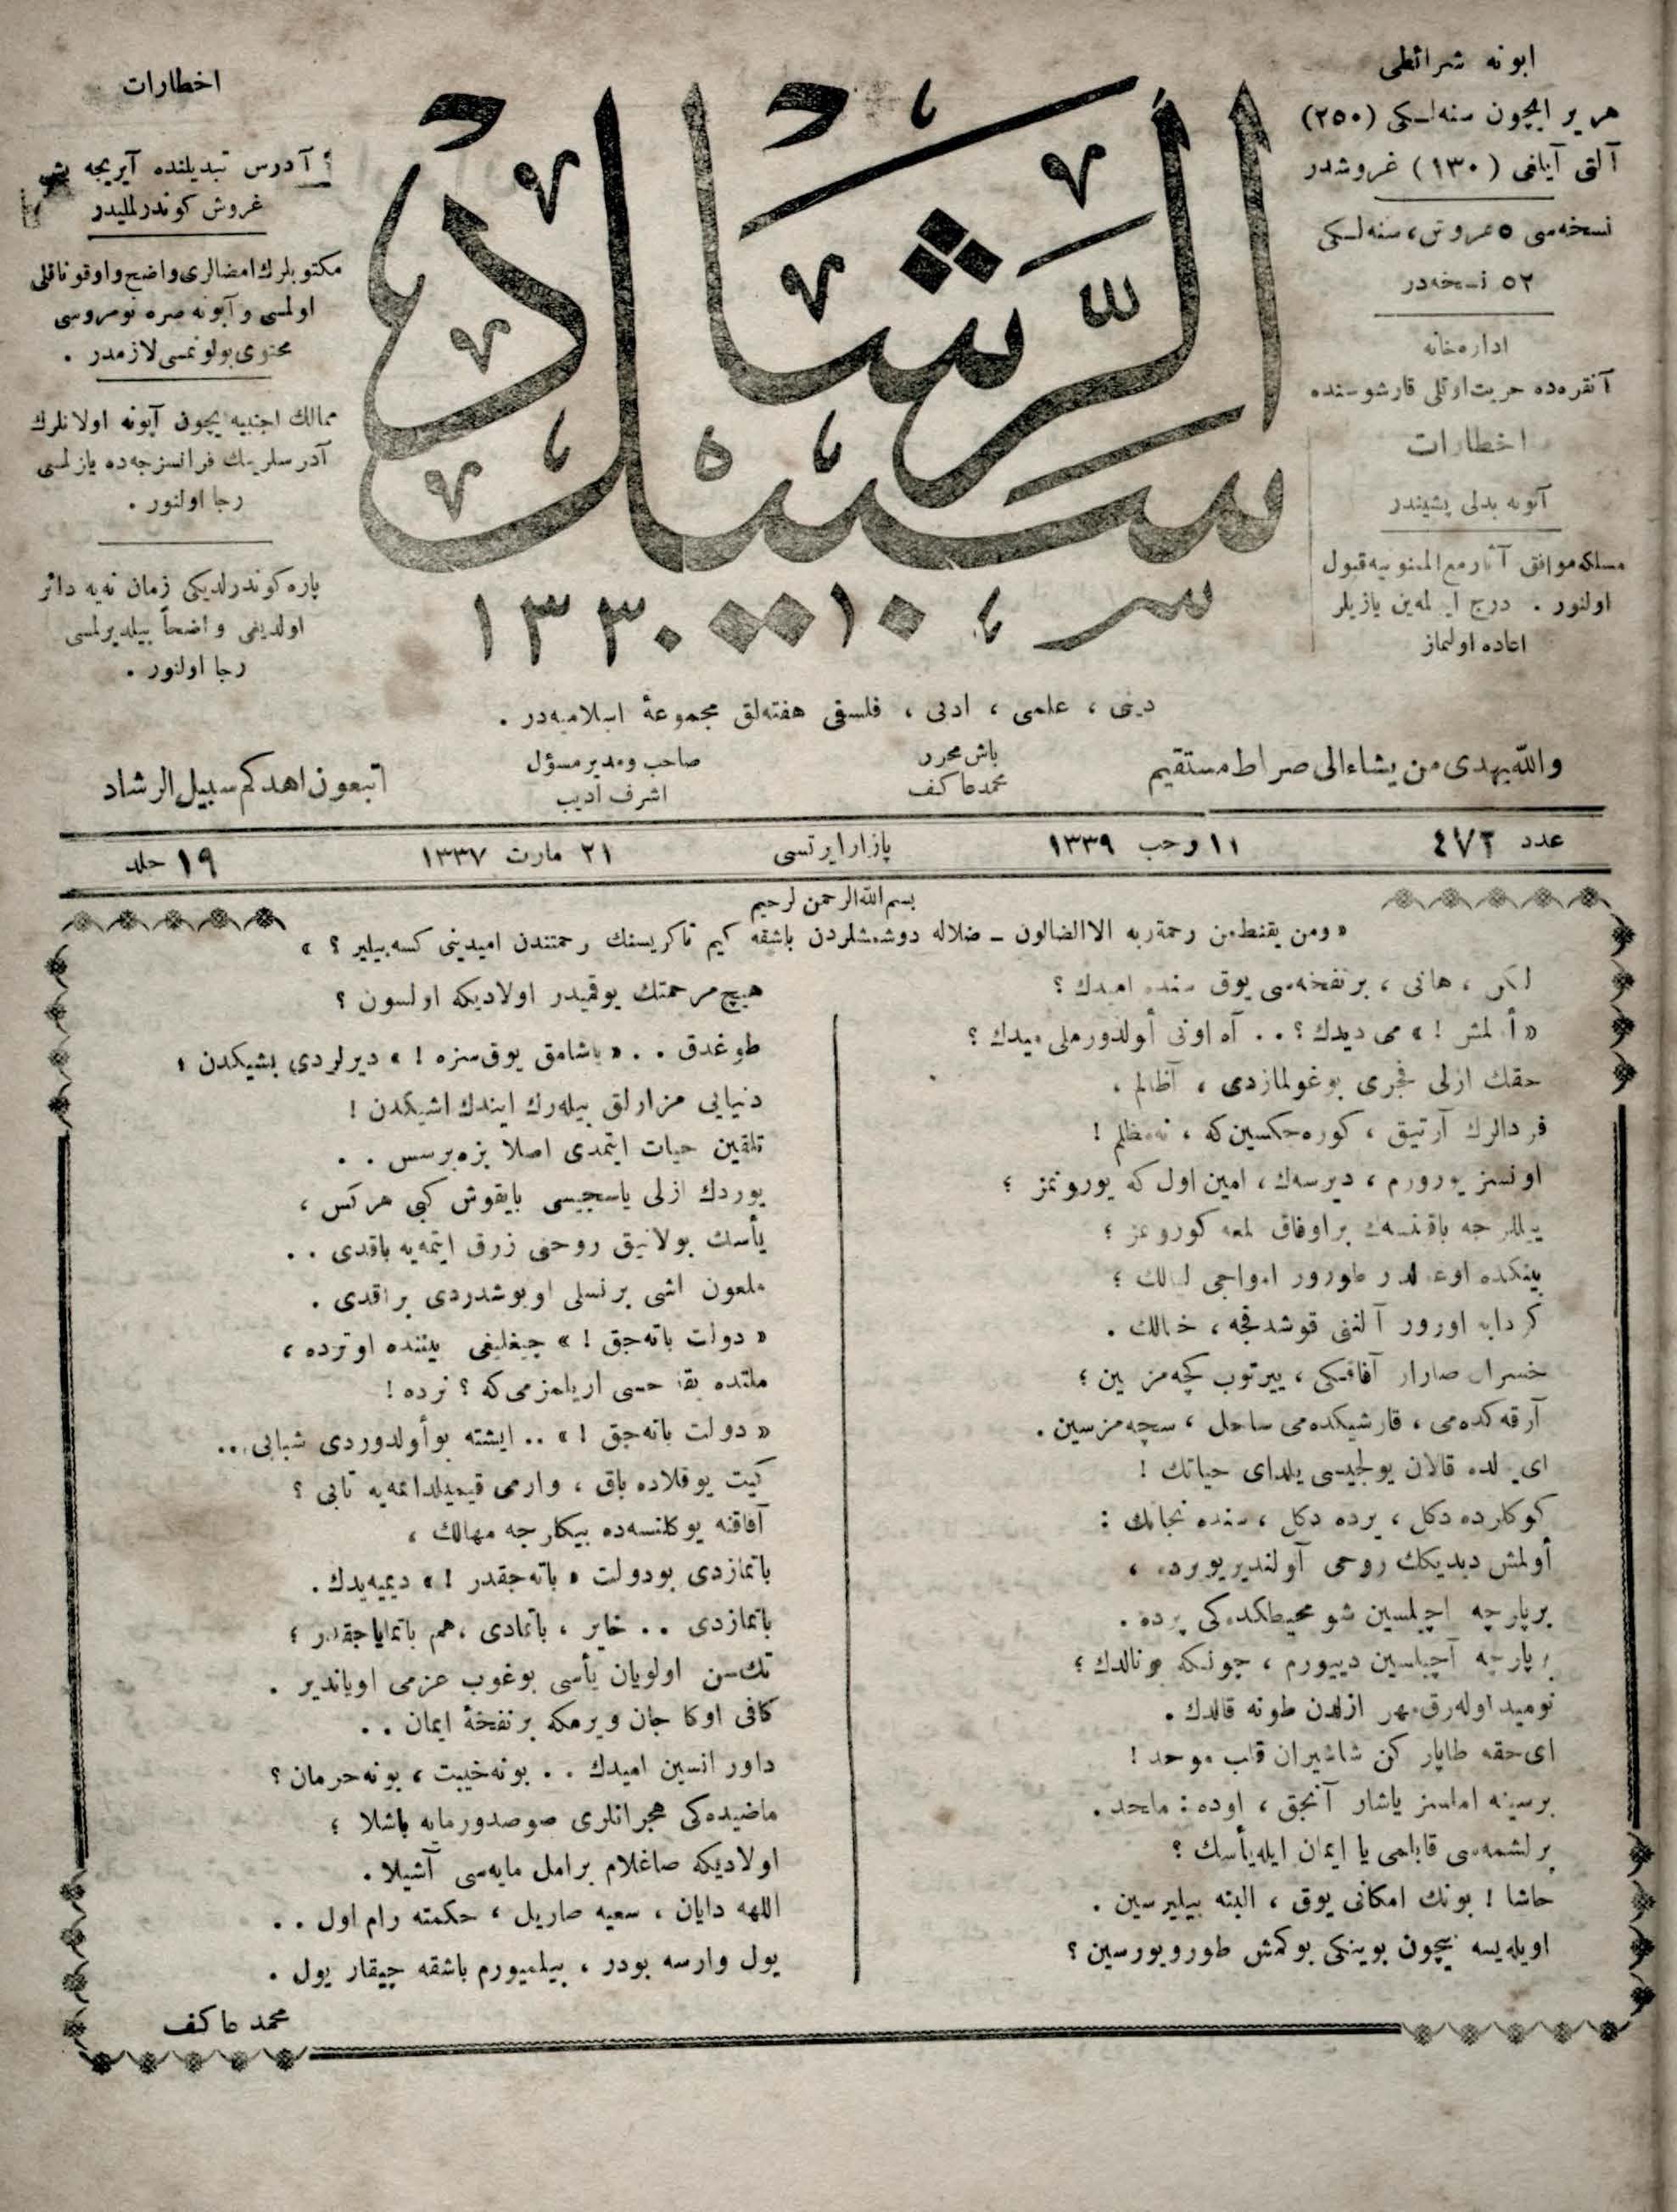 ابونه شرائطی
هر یر ایچون سنه‌لکی (۲۵۰)
آلتی آیلغی (۱۳۰) غروشدر
نسخه‌سی ۵ غروش، سنه‌لکی
۵۲ نسخه‌در
اداره‌خانه
آنقره‌ده حریت اوتلی قارشوسنده
اخطارات
آبونه بدلی پشیندر
مسلکه موافق آثار مع‌الممنونیه قبول
اولنور . درج ایدلمه‌ین یازیلر
اعاده اولنماز
سبیل الرشاد
۱۳۳۰
اخطارات
آدرس تبدیلنده آیریجه بش
غروش کوندرلملیدر
مکتوبلرك امضالری واضح واوقوناقلی
اولمسی و آبونه صره نومروسی
محتوی بولونمسی لازمدر .
ممالك اجنبیه ایچون آبونه اولانلرك
آدرسلرینك فرانسزجه‌ده یازلمسی
رجا اولنور .
پاره کوندرلدیکی زمان نه‌یه دائر
اولدیغی واضحاً بیلدیرلمسی
رجا اولنور .
دینی ، علمی ، ادبی ، فلسفی هفته‌لق مجموعۀ اسلامیه‌در .
والله یهدی من یشاء الی صراط مستقیم
باش محرر
محمد عاکف
صاحب ومدیر مسؤل
اشرف ادیب
اتبعون اهدکم سبیل الرشاد
عدد ٤٧٢
۱۱ رجب ۱۳۳۹
پازارایرتسی
۲۱ مارت ۱۳۳۷
۱۹ جلد
بسم الله الرحمن الرحیم
« ومن یقنط من رحمة ربه الا الضالون ــ ضلاله دوشمشلردن باشقه کیم تاکریسنك رحمتندن امیدینی کسه‌بیلیر ؟ »
لکن ، هانی ، بر نفخه‌سی یوق سنده امیدك ؟
« أولمش ! » می دیدك ؟ . . آه اونی أولدورملی میدك ؟
حقك ازلی فجری بوغولمازدی ، آ ظالم ،
فردالرك آرتیق ، کوره‌جکسین که ، نه مظلم !
اونسز یورورم ، دیرسه‌ك ، امین اول که یورونمز ؛
ییللرجه باقنسه‌ك بر اوفاق لمعه کورونمز ؛
بینکده اوغولدر طورور امواجی لیالك ؛
کردابه اورور آلننی قوشدقجه ، خیالك .
خسران صارار آفاقکی ، ییرتوب کچه‌مزسین ؛
آرقه‌کده‌می ، قارشیکده‌می ساحل ، سچه‌مزسین .
ای یولده قالان یولجیسی یلدای حیاتك !
کوکلرده دکل ، یرده دکل ، سنده نجاتك :
أولمش دیدیکك روحی آولندیریویرده ،
بر پارچه آچیلسین شو محیطکده‌کی پرده .
بر پارچه آچیلسین دییورم ، چونکه بونالدك ؛
نومید اوله‌رق مهر ازلدن طونه قالدك .
ای حقه طاپار کن شاشیران قلب موحد !
بر سینه املسز یاشار آنجق ، اوده : ملحد .
برلشمه‌سی قابلمی یا ایمان ایله یأسك ؟
حاشا ! بونك امکانی یوق ، البته بیلیرسین .
اویله‌یسه نیچون بوینکی بوکمش طورویورسین ؟
هیچ مرحمتك یوقمیدر اولادیکه اولسون ؟
طوغدق . . « یاشامق یوق سزه ! » دیرلردی بشیکدن ؛
دنیایی مزارلق بیله‌رك ایندك اشیکدن !
تلقین حیات ایتمدی اصلا بزه بر سس . .
یوردك ازلی یاسجیسی بایقوش کبی هر کس ،
یأسك بولانیق روحنی زرق ایتمه‌یه باقدی . .
ملعون اشی بر نسلی اویوشدردی براقدی .
« دولت باته‌جق ! » چیغلیغی بیننده اوترده ،
ملتده بقا حسی اریلمزمی که ؟ نرده !
« دولت باته‌جق ! » .. ایشته بو أولدوردی شبابی . .
کیت یوقلاده باق ، وارمی قیمیلدانمه‌یه تابی ؟
آفاقنه یوکلنسه‌ده بیکلرجه مهالك ،
باتمازدی بو دولت « باته‌جقدر ! » دیمیه‌یدك .
باتمازدی . . خایر ، باتمادی ، هم باتمایاجقدر ؛
تك سن اولویان یأسی بوغوب عزمی اویاندیر .
کافی اوکا جان ویرمکه بر نفخۀ ایمان . .
داورانسین امیدك . . بو نه خیبت ، بو نه حرمان ؟
ماضیده‌کی هجرانلری صوصدورمایه باشلا ؛
اولادیکه صاغلام بر امل مایه‌سی آشیلا .
اللهه دایان ، سعیه صاریل ، حکمته رام اول . .
یول وارسه بودر ، بیلمیورم باشقه چیقار یول .
محمد عاکف